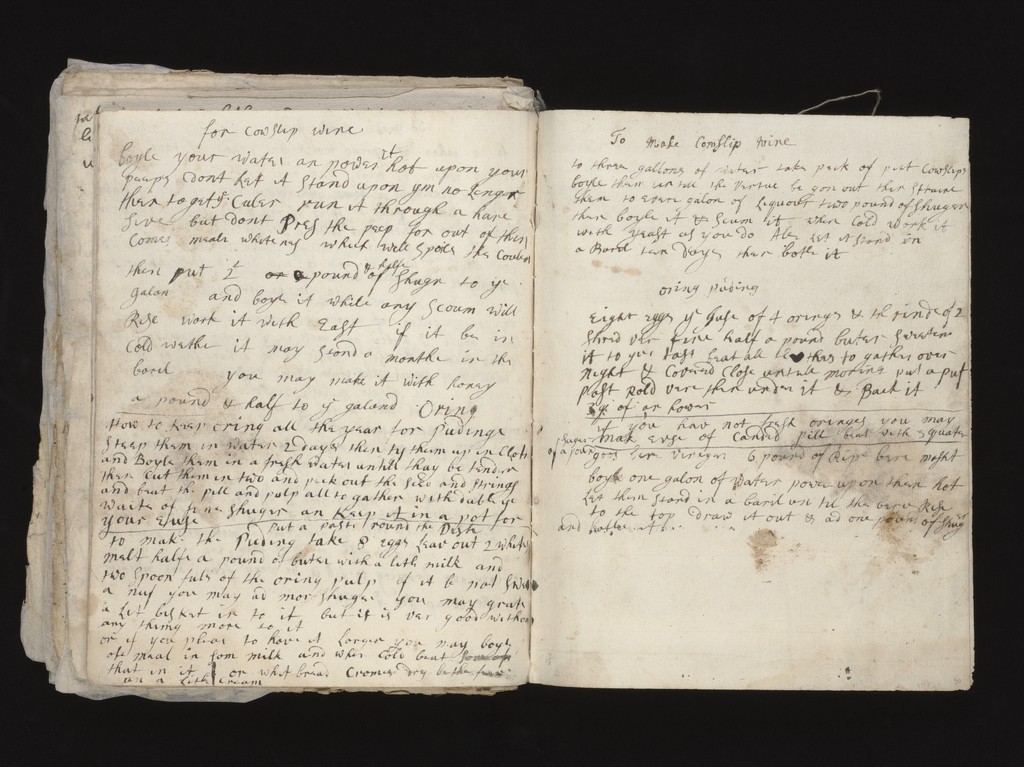 for Cowslip wine
boyle your water an power it hot upon your
peeps dont Let it Stand upon ym no Longer
then to get ye Culer run it through a hare
Sive but dont Press the peep for out of them
Comes meale whitenes which will Spoile the Couler
then put 2 pound & halfe of Shuger to ye
galon and boyle it while any Scoum will
Rise work it with East if it be in
Cold wethe it may stand a monthe in the
baril you may make it with honey
a pound & half to ye galand Oring
How to keep oring all the year for Pudings
Steep them in water 2 days then ty them up in Cloth
and Boyle them in a fresh water untill thay be tender
then Cut them in two and peck out the Seed and Strings
and beat the pill and pulp all to gather with duble ye
waite of fine Shuger an Keep it in a pot for
your Euse put a past round the Dish
to make the Puding take 8 eggs Leav out 2 whites
melt halfe a pound of buter with a Litle milk and
two Spoon fuls of the oring pulp if it be not Sweet
a nuf you may ad mor Shuger you may grate
a Lit bisket in to it but it is ver good without
any thing more to it
or if you pleas to have it Larger you may boyle
ote meal in som milk and when Cold beat
that in it or whit bread Cromes dry
an a Litle Cream
To Make Cowslip wine
to three gallons of water take peck of pect Cowslips
boyle them un till the vertue be gon out then Straine
them to evere galon of Lequour two pound of Shuger
then boyle it & Scum it when Cold work it
with yeast as you do Ale Let it Stand in
a Baril ten Dayes then botle it
oring puding
Eight eggs ye Juse of 4 oringes & th rinde of 2
Shred ver fine half a pound buter Sweeten
it to your tast beat all to gather over
night & Covered Close untill morning put a puf
Past Rold vere thin under it & Back it
of an hower
if you hav not fresh oringes you may
mak euse of Canded pill beat with
goos bere vineger 6 pound of Ripe bere
boyle one galon of water power upon them hot
Let them Stand in a baril un til the bere Rise
to the top draw it out & ad one pound of Shuger
and